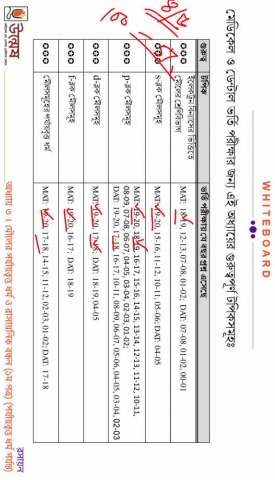 WHITEBOARD
মেডিকেল ও ডেন্টাল ভর্তি পরীক্ষার জন্য এই অধ্যায়ের গুরুত্বপূর্ণ টপিকসমূহঃ
গুরুত্ব টপিক ভর্তি পরীক্ষায় যে বছর প্রশ্ন এসেছে
ইলেকট্রন বিন্যাসের ভিত্তিতে মৌলের শ্রেণিবিভাগ MAT: 18-19, 12-13, 07-08, 01-02; DAT: 07-08, 01-02, 00-01
s-ব্লক মৌলসমূহ MAT: 19-20, 15-16, 11-12, 10-11, 05-06; DAT: 04-05
p-ব্লক মৌলসমূহ MAT: 19-20, 16-17, 15-16, 14-15, 13-14, 12-13, 11-12, 10-11,
08-09, 07-08, 06-07, 04-05, 03-04, 02-03, 01-02;
DAT: 19-20, 17-18, 16-17, 10-11, 08-09, 06-07, 05-06, 04-05, 03-04, 02-03
d-ব্লক মৌলসমূহ MAT: 19-20, DAT: 18-19, 04-05
f-ব্লক মৌলসমূহ MAT: 19-20, 16-17; DAT: 18-19
মৌলসমূহের পর্যায়বৃত্ত ধর্ম MAT: 19-20, 17-18, 14-15, 11-12, 02-03, 01-02; DAT: 17-18
উন্মেষ
অধ্যায় ৩ । মৌলের পর্যায়বৃত্ত ধর্ম ও রাসায়নিক বন্ধন (১ম পত্র) (পর্যায়বৃত্ত ধর্ম পর্যন্ত)
রসায়ন